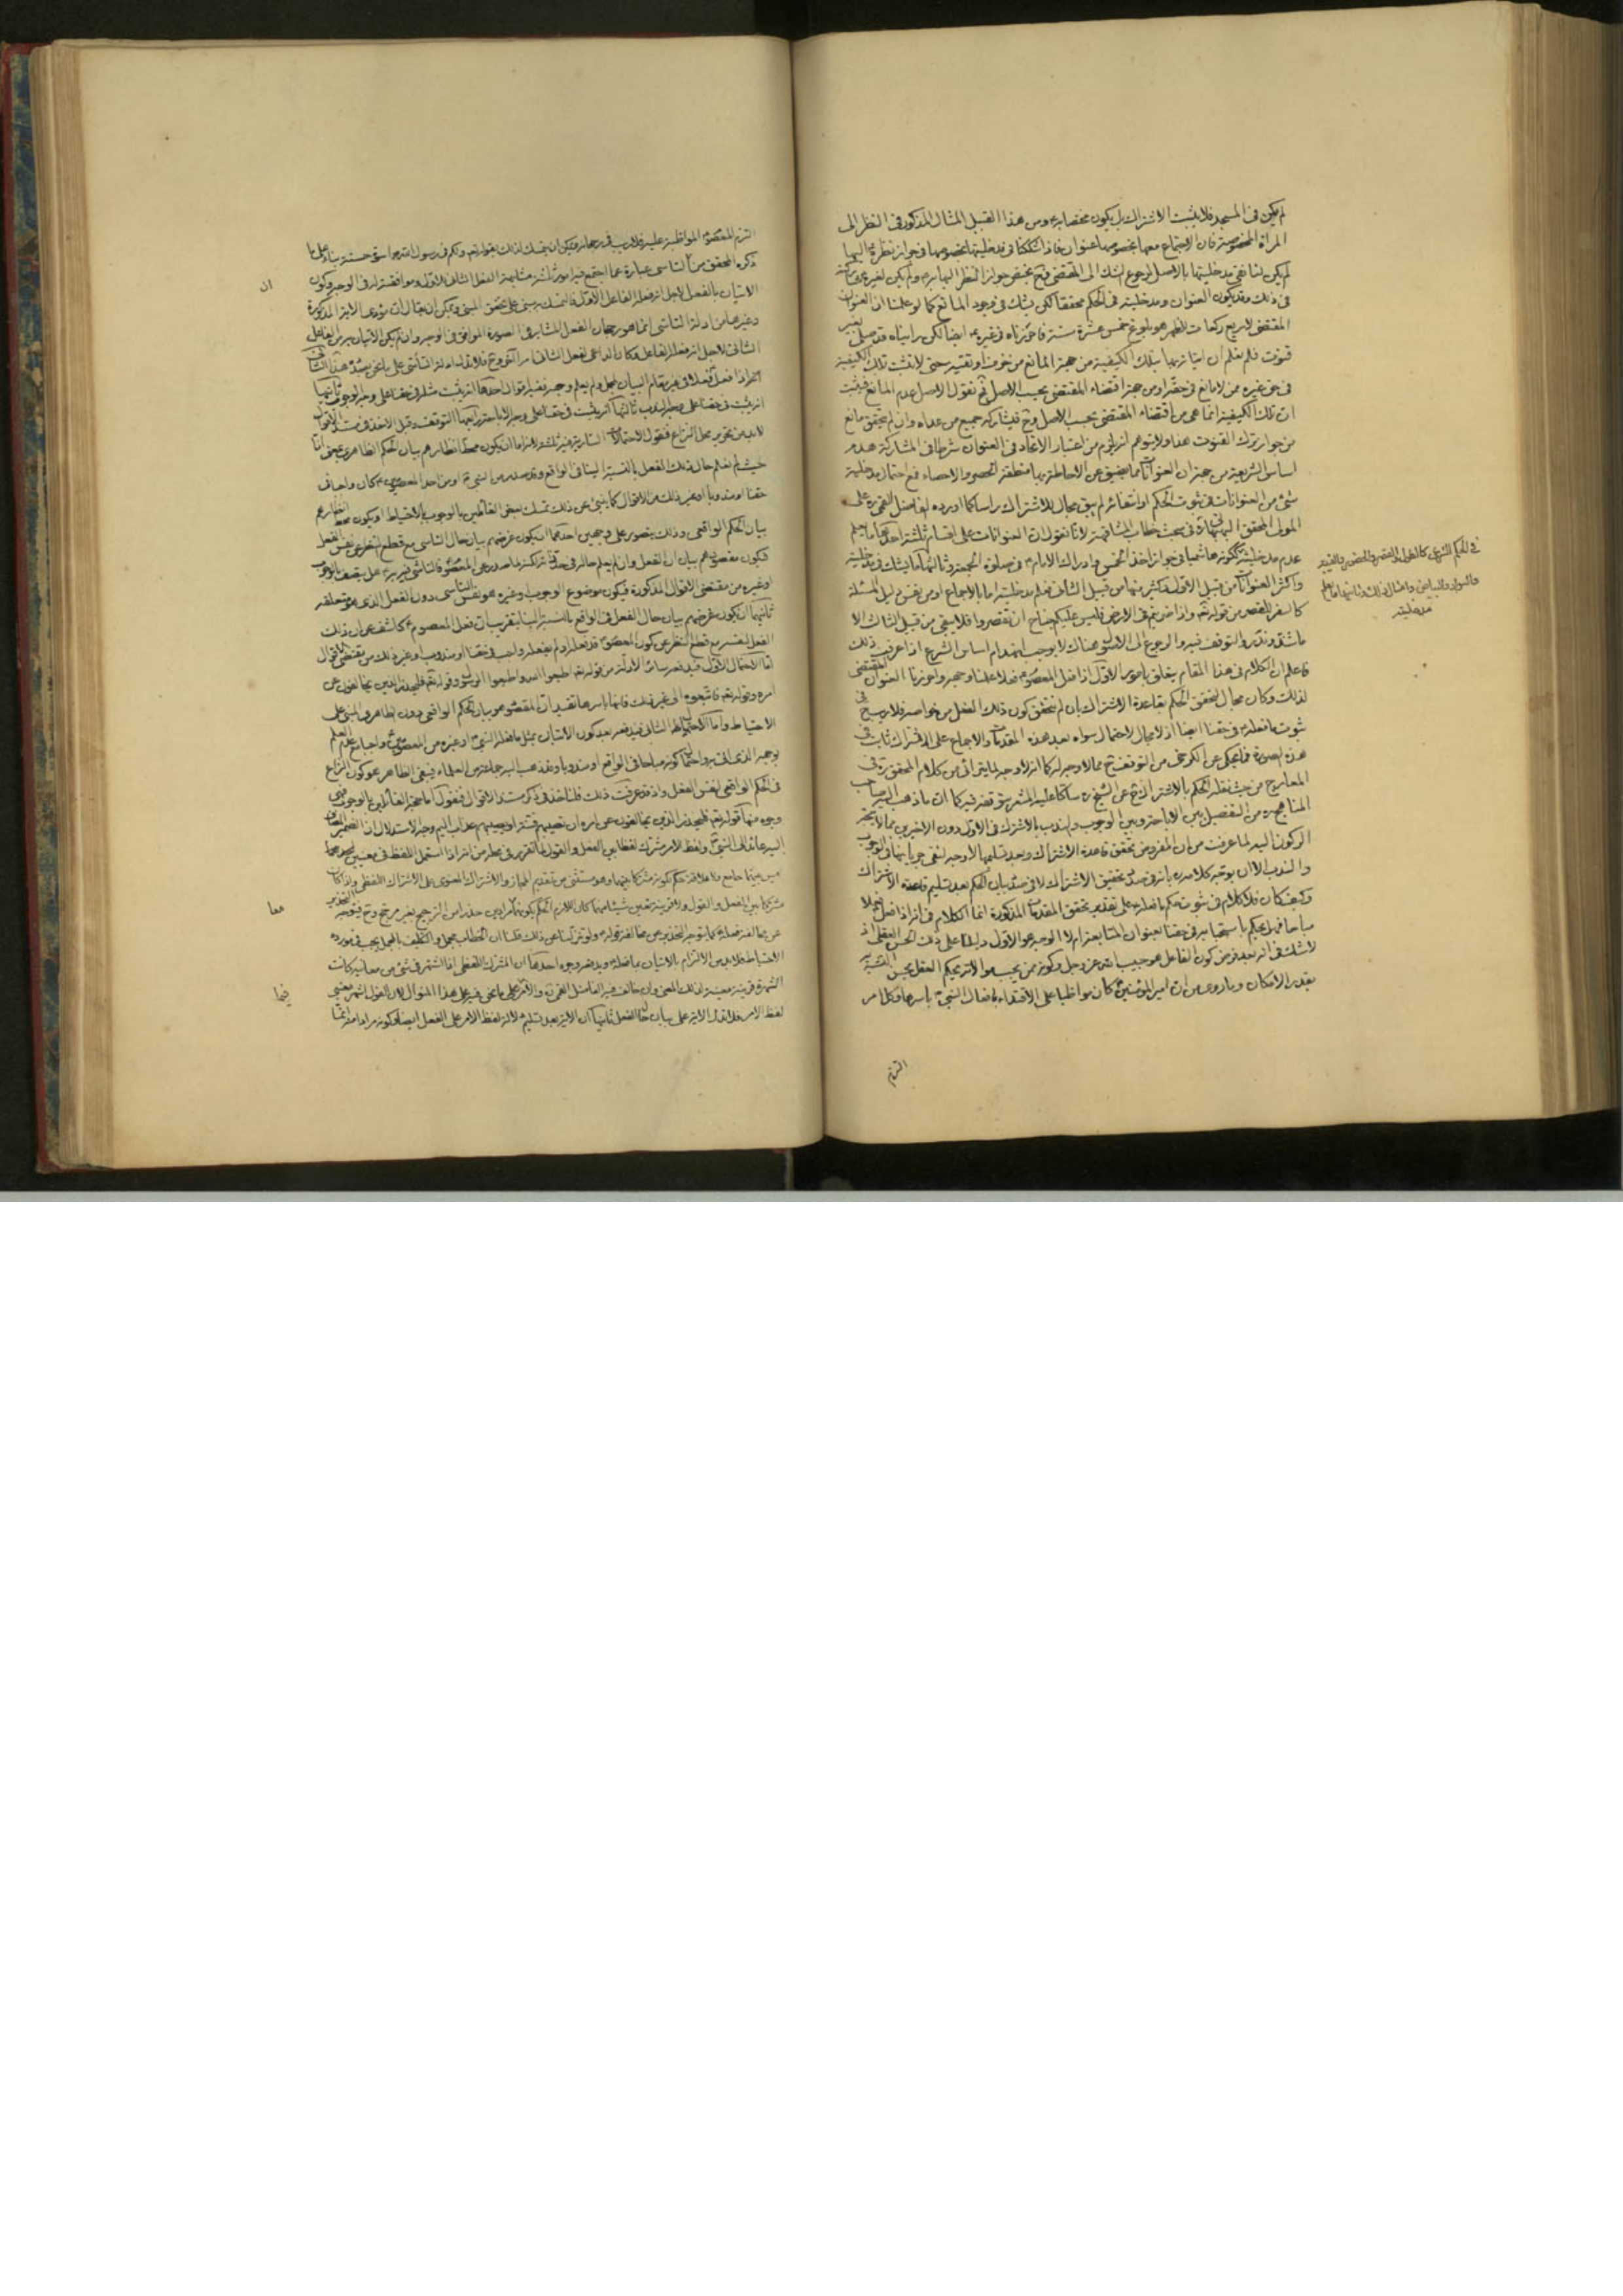 لم يكن في المسجد فلا يثبت الاشتراك بل يكون مختصا به ومن هذا القبيل المثال المذكور في النظر الى
المراة المخصوصة فان الاجتماع معها بخصوصها عنوان فاذا شككنا في مدخليتها بخصوصها في جواز نظره اليها
لم يكن لنا نفي مدخليتها بالاصل لرجوع الشك الى المقتضي فح يختص جواز النظر اليها به ولم يكن لغيره
في ذلك وقد يكون العنوان ومدخليته في الحكم محققا لكن يشك في وجود المانع كما لو علمنا ان العنوان
المقتضي لاربع ركعات للظهر هو بلوغ خمس عشرة سنة فاحرزناه في غيره ايضا لكن رايناه قد صلى بغير
قنوت فلم نعلم ان اتيانه بها بتلك الكيفية من جهة المانع من خوف او تقية حتى لا يثبت تلك الكيفية
في حق غيره ممن لا مانع في حقه او من جهة اقتضاء المقتضي بحسب الاصل ثم نقول الاصل عدم المانع فيثبت
ان تلك الكيفية انما هي من اقتضاء المقتضي بحسب الاصل وح فيشاركه جميع من عداه وان لم يتحقق مانع
من جواز ترك القنوت هذا ولا يتوهم انه يلزم من اعتبار الاتحاد في العنوان شرطا في المشاركة هدم
اساس الشريعة من جهة ان العنوانات مما يضيق عن الاحاطة بها منطقة الحصر والاحصاء فمع احتمال مدخلية
شيء من العنوانات في ثبوت الحكم او انتفائه لم يبق مجال للاشتراك راسا كما اورده الفاضل القمي ره على
المولى المحقق البهبهاني ره في مبحث خطاب المشافهة لانا نقول ان العنوانات على اقسام ثلثة احدها ما يعلم
عدم مدخليته ككونه هاشميا في جواز اخذ الخمس وادراك الامام ع في صلوة الجمعة وثالثها ما يشك في مدخليته
في الحكم الشرعي كالطول والقصر والحضور والغيبة
والسواد والبياض وامثال ذلك وثانيها ما يعلم
مدخليته
واكثر العنوانات من قبيل الاول وكثير منها من قبيل الثاني فعلم مدخليته اما بالاجماع او من نفس دليل المسئلة
كالسفر للقصر من قوله تع واذا ضربتم في الارض فليس عليكم جناح ان تقصروا فلا يبقى من قبيل الثالث الا
ما شذ وندر والتوقف فيه والرجوع الى الاصل هناك لا يوجب انهدام اساس الشرع اذا عرفت ذلك
فاعلم ان الكلام في هذا المقام يتعلق بامور الاول اذا فعل المعصوم ع فعلا علمنا وجهه واحرزنا العنوان المقتضي
لذلك وكان مجال لتحقق الحكم بقاعدة الاشتراك بان لم نتحقق كون ذلك الفعل من خواصه فلا ريب في
ثبوت ما فعله في حقنا ايضا اذ لا مجال لاحتمال سواه بعد هذه المقدمات والاجماع على الاشتراك ثابت في
هذه الصورة فما يحكى عن الكرخي من التوقف ح مما لا وجه له كما انه لا وجه لما يترائى من كلام المحقق ره في
المعارج من حيث نقله الحكم بالاشتراك ح عن الشيخ ره ساكتا عليه المشعر بتوقفه فيه كما ان ما ذهب اليه صاحب
المناهج ره من التفصيل بين الاباحة وبين الوجوب والندب بالاشتراك في الاول دون الاخيرين مما لا يتجه
الركون اليه لما عرفت من ان المفروض تحقق قاعدة الاشتراك وبعد تسليمها لا وجه لنفي جريانها في الوجوب
والندب الا ان يوجه كلامه ره بانه في صدد تحقيق الاشتراك لا في صدد بيان الحكم بعد تسليم قاعدة الاشتراك
وكيف كان فلا كلام في ثبوت حكم ما فعله على تقدير تحقق المقدمات المذكورة انما الكلام في انه اذا فعل فعلا
مباحا فهل يحكم باستحبابه في حقنا بعنوان المتابعة ام لا الوجه هو الاول دليلنا على ذلك الحسن العقلي اذ
لا شك في انه بعد فرض كون الفاعل هو حبيب الله عز وجل وكونه ممن يجب موالاته يحكم العقل بحسن التشبه
بقدر الامكان وما روي من ان امير المؤمنين ع كان مواظبا على الاقتداء بافعال النبي ص باسرها وكلما مر
التزم
التزم المعصوم ع المواظبة عليه فلا ريب في رجحانه ويمكن ان يتمسك لذلك بقوله تع ولكم في رسول الله اسوة حسنة بناء على ما
ذكره المحقق من ان التاسي عبارة عما اجتمع فيه امور ثلثة مشابهة الفعل الثاني للاول وموافقته له في الوجه وكون
ان
الاتيان بالفعل لاجل انه فعله الفاعل الاول فالتمسك مبني على تحقق المبنى ويمكن ان يقال ان مؤدى الاية المذكورة
وغيرها من ادلة التاسي انما هو رجحان الفعل المشابه في الصورة الموافق في الوجه وان لم يكن الاتيان به من الفاعل
الثاني لاجل انه فعله الفاعل فكان الداعي لفعل الثاني امرا اخر وح فلا تدل ادلة التأسي على ما نحن بصدده هذا الثاني
انه اذا فعل فعلا في غير مقام البيان لمجمل ولم يعلم وجهه ففيه اقوال احدها انه يثبت مثله في حقنا على وجه الوجوب ثانيها
انه يثبت في حقنا على وجه الندب ثالثها انه يثبت في حقنا على وجه الاباحة رابعها التوقف وقبل الاخذ في مستند الاقوال
لا بد من تحرير محل النزاع فنقول الاحتمالات السارية فيه ثلثة لانه اما ان يكون محط انظارهم بيان الحكم الظاهري يعني انا
حيث لم نعلم حال ذلك الفعل بالنسبة الينا في الواقع وقد صدر من النبي ص او من احد المعصومين ع كان واجبا في
حقنا او مندوبا او غير ذلك من الاقوال كما ينبئ عن ذلك تمسك بعض القائلين بالوجوب بالاحتياط او يكون محط انظارهم
بيان الحكم الواقعي وذلك يتصور على وجهين احدهما ان يكون غرضهم بيان حال التاسي مع قطع النظر عن نفس الفعل
فيكون مقصودهم بيان ان الفعل وان لم يعلم حاله في حد ذاته لكنه لما صدر عن المعصوم ع فالتاسي فيه به ع هل يتصف بالوجوب
او غيره من مقتضى الاقوال المذكورة فيكون موضوع الوجوب وغيره هو نفس التاسي دون الفعل الذي هو متعلقه
ثانيهما ان يكون غرضهم بيان حال الفعل في الواقع بالنسبة الينا بتقريب ان فعل المعصوم ع كاشف عن ان ذلك
الفعل بنفسه مع قطع النظر عن كون المعصوم ع قد فعله او لم يفعله واجب في حقنا او مندوب او غير ذلك من مقتضى الاقوال
اما الاحتمال الاول فيبعده سائر الادلة من قوله تع اطيعوا الله واطيعوا الرسول وقوله تع فليحذر الذين يخالفون عن
امره وقوله تع فاتبعوه الى غير ذلك فانها باسرها تفيد ان المقصود هو بيان الحكم الواقعي دون الظاهري المبني على
الاحتياط واما الاحتمال الثاني فيبعده بعد كون الاتيان بمثل ما فعله النبي ص او غيره من المعصومين ع واجبا مع عدم العلم
بوجهه الذي اتى به واحتمال كونه مباحا في الواقع او مندوبا وقد ذهب اليه جماعة من العلماء فيبقى الظاهر هو كون النزاع
في الحكم الواقعي لنفس الفعل واذ قد عرفت ذلك فلناخذ في ذكر مستند الاقوال فنقول اما حجة القائلين بالوجوب فهي
وجوه منها قوله تع فليحذر الذين يخالفون عن امره ان تصيبهم فتنة او يصيبهم عذاب اليم وجه الاستدلال ان الضمير المضاف
اليه عائد الى النبي ص ولفظ الامر مشترك لفظا بين الفعل والقول لما تقرر في محله من انه اذا استعمل اللفظ في معنيين لم يوجد
بينهما جامع ولا علاقة حكم بكونه مشتركا بينهما وهو مستثنى من تقديم المجاز والاشتراك المعنوي على الاشتراك اللفظي واذا كان
مشتركا بين الفعل والقول ولا قرينة تعين شيئا منهما كان اللازم الحكم بكونهما مرادين حذرا من الترجيح بغير مرجح وح فيتوجه التحذير
معا
عن مخالفة فعله كما توجه التحذير عن مخالفة قوله ولو تنزلنا عن ذلك قلنا ان الخطاب مجمل والتكليف بالمجمل يجب في مورده
الاحتياط فلا بد من الالتزام بالاتيان بما فعله ويدفعه وجوه احدها ان المشترك اللفظي اذا اشتهر في شيء من معانيه كانت
الشهرة قرينة معينة لذلك المعنى وان خالف فيه الفاضل القمي ره والامر فيما نحن فيه على هذا المنوال لان القول اشهر معنيي
فيما
لفظ الامر فلا تدل الاية على بيان حال الفعل ثانيها ان الاية بعد تسليم دلالة لفظ الامر على الفعل ايضا وكونه مرادا منه انما